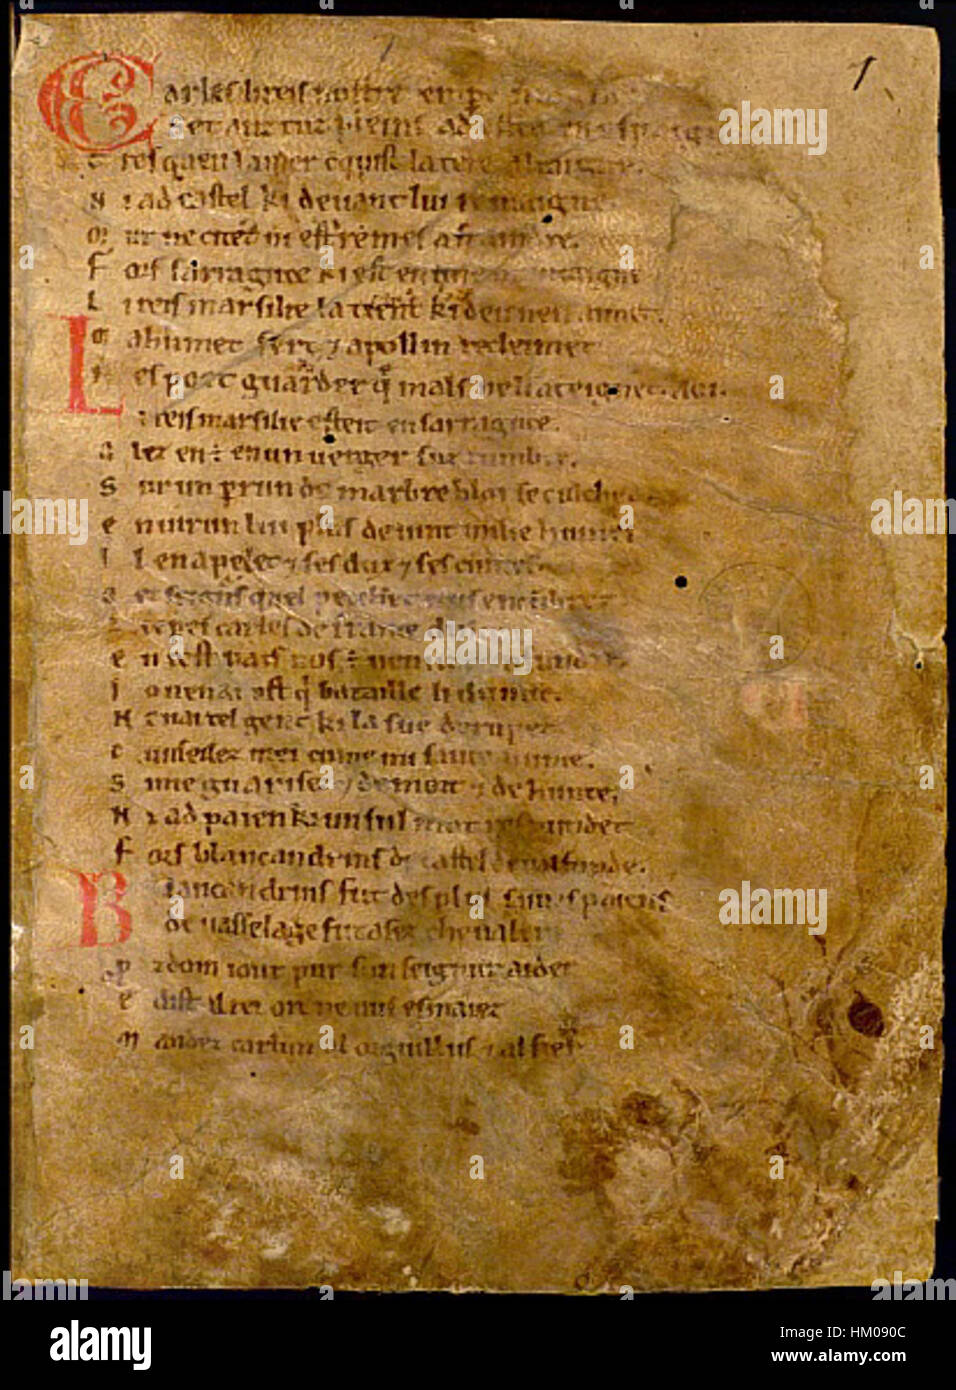 Carles li reis nostre empe
Set anz tuz pleins ad estet en espaigne
Tresquen la mer cquist la tere altaigne.
N i ad castel ki deuant lui remaigne
Mur ne citet ni est remes a fraindre.
F ors sarraguce ki est en une muntaigne
L i reis marsilie la tient ki deu nen aimet.
Mahumet sert ⁊ apollin recleimet
Nes poet guarder q̄ mals ne li ateignet. aoi.
Li reis marsilie esteit en sarraguce.
A lez en ē en un uerger suz lumbre.
S ur un perrun de marbre bloi se culchet
E nuirun lui plus de uint milie humes
I l en apelet ⁊ ses dux ⁊ ses cuntes.
O ez seignurs quel pecchet nus encumbret
li emperes carles de france dulce
E n cest pais nos ē uenuz cunfundre
J o nen ai ost q̄ bataille li dunne.
N ai tel gent ki la sue derumpet
C unseilez mei cume mi saiue hume.
S i me guarisez ⁊ de mort ⁊ de hunte.
N i ad paien ki un sul mot respundet
F ors blancandrins de castel de ualfunde.
Blancandrins fut des plus saiues paiens
De uasselage fut asez cheualer
P rozdom i out pur sun seignur aider
E dist al rei or ne uus esmaiez
M andez carlun al orguillus ⁊ al fier
1
alamy
Image ID: HM090C
www.alamy.com